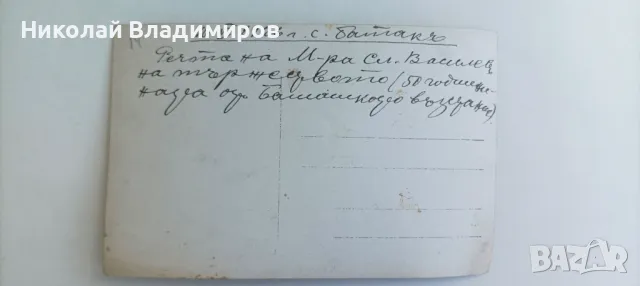 Николай Владимиров
г. с. Батакъ
Речта на М-ра Сл. Василев
на тържеството (50 годишни-
ната от Баташкото въстание)
BAZAR